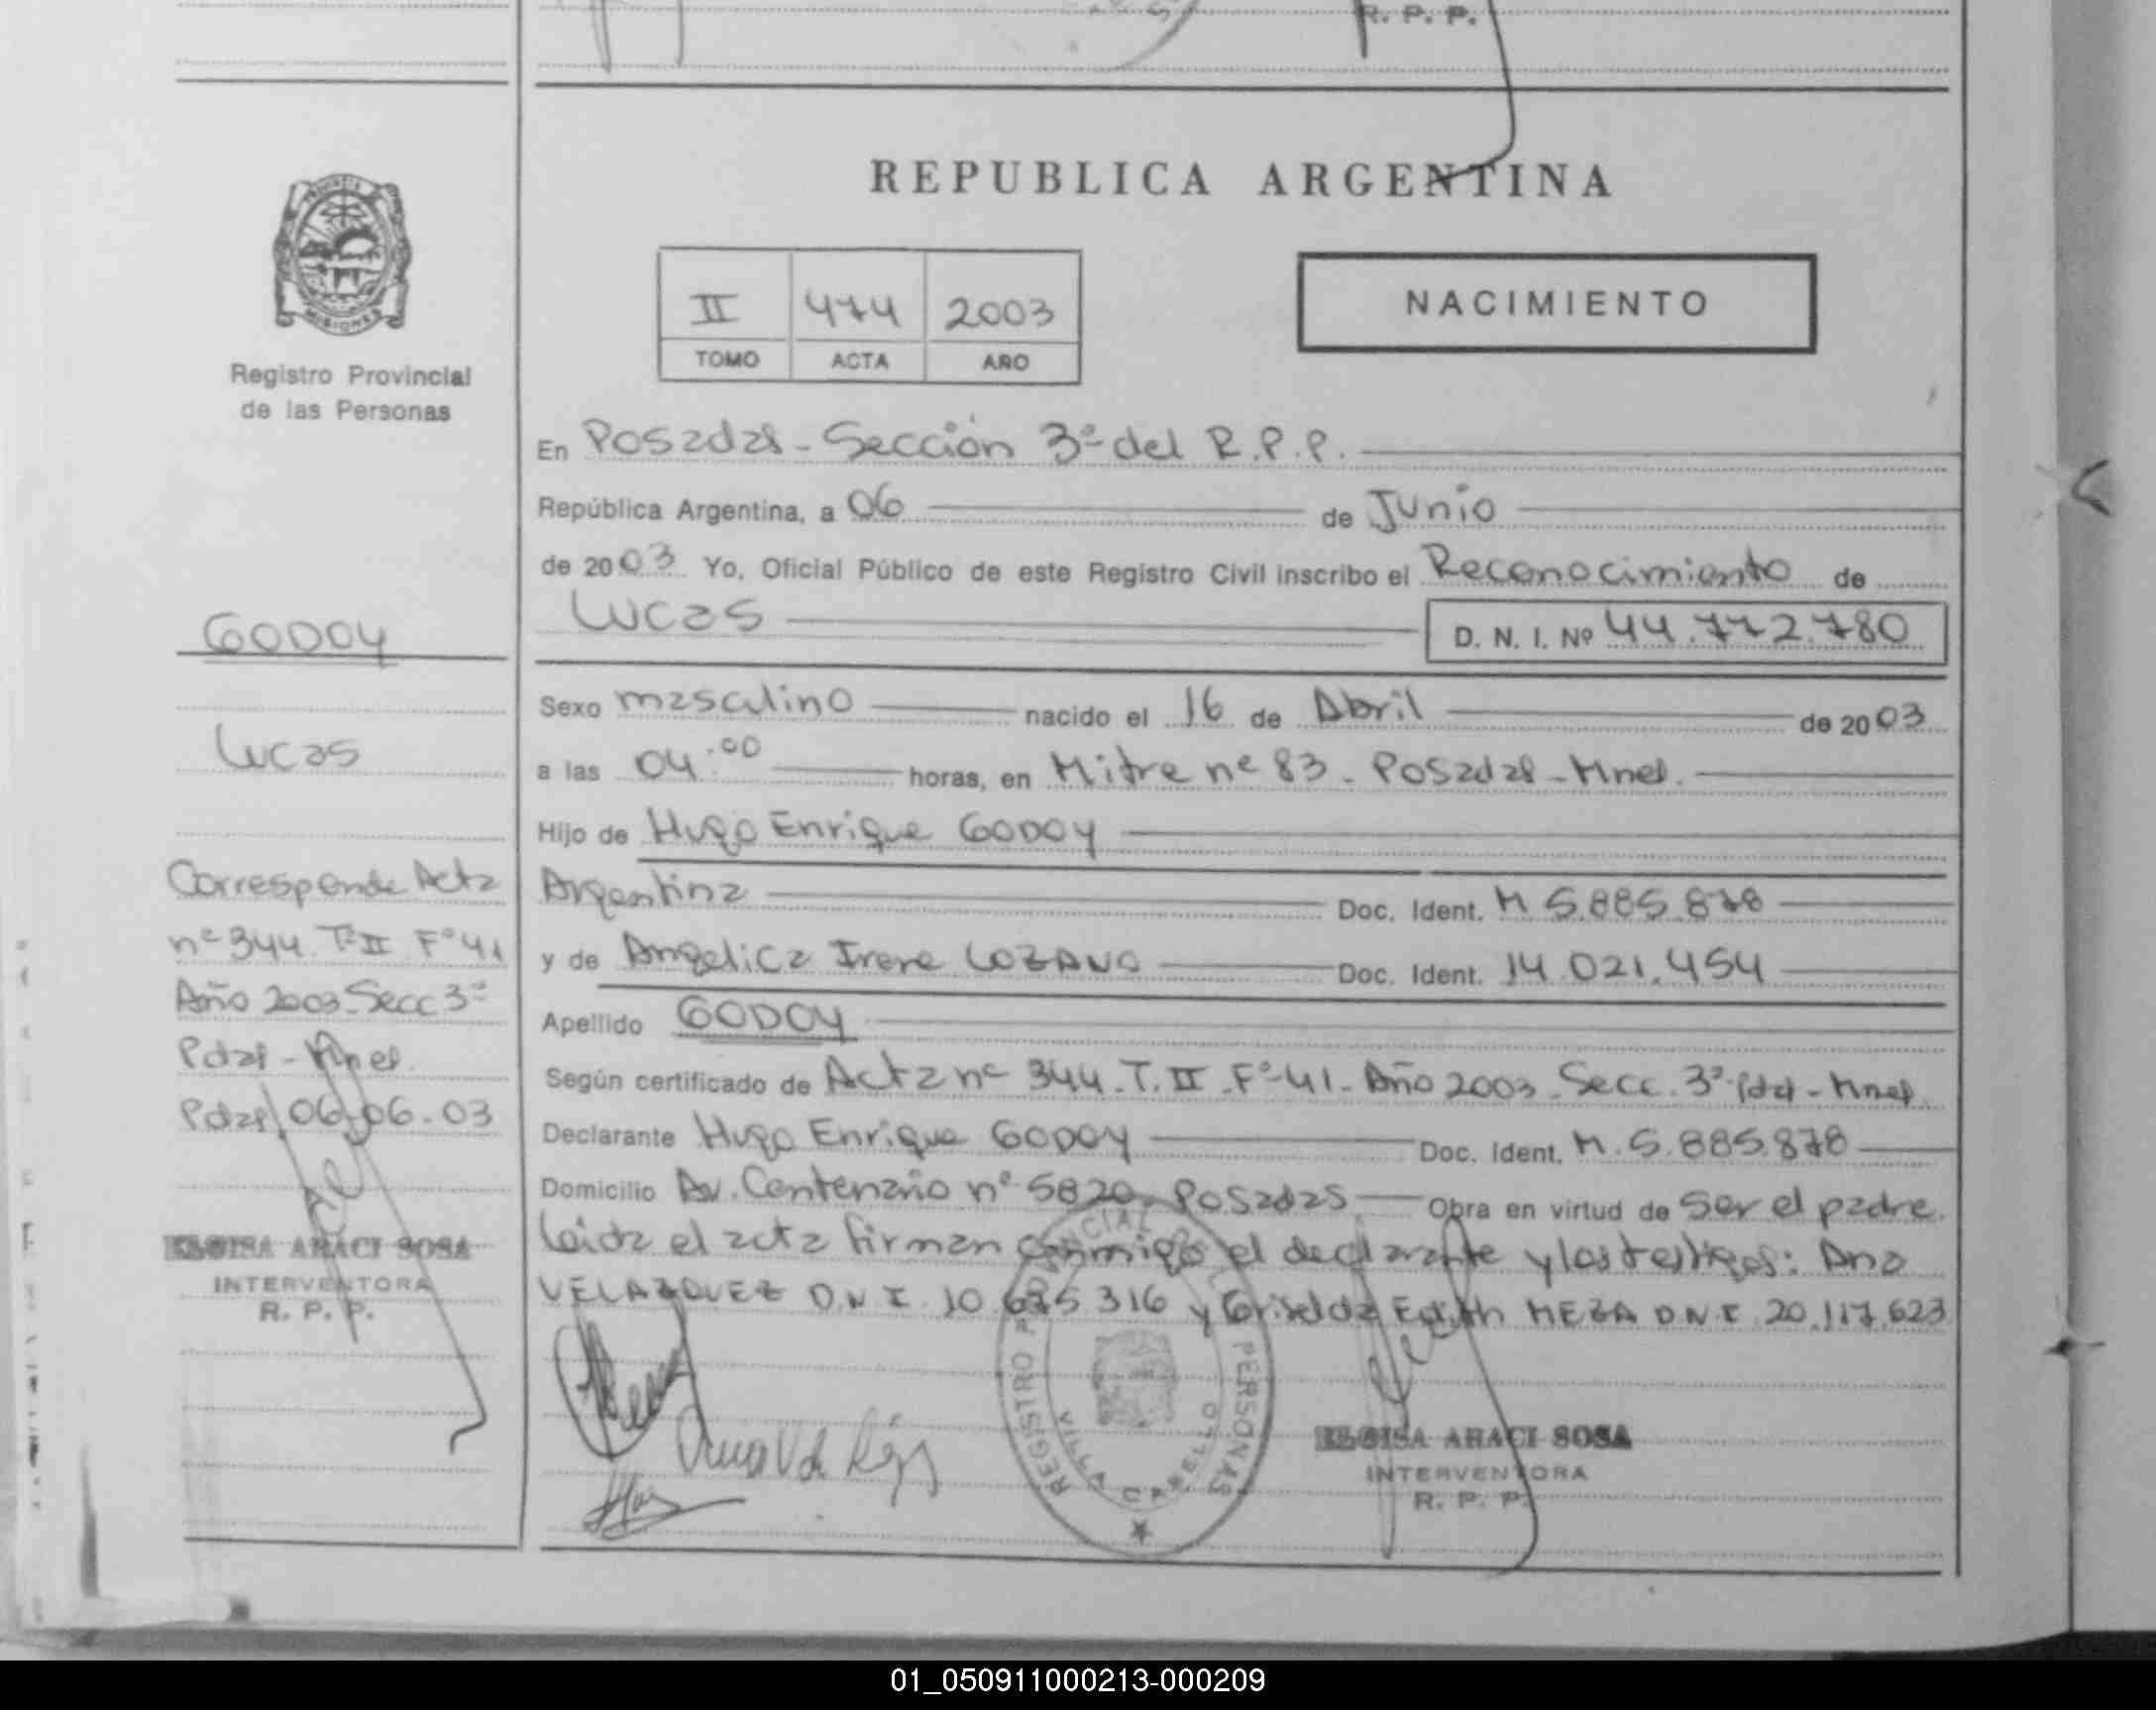 R. P. P.
REPUBLICA ARGENTINA
MISIONES
Registro Provincial
de las Personas
II 474 2003
TOMO ACTA AÑO
NACIMIENTO
En Posadas - Sección 3ª del R.P.P.
República Argentina, a 06 de Junio
de 2003 Yo, Oficial Público de este Registro Civil inscribo el Reconocimiento de
Lucas D. N. I. Nº 44.772.780
GODOY
Lucas
Corresponde Acta
nº 344 Tº II Fº 41
Año 2003 - Secc 3ª
Pdas - Mnes.
Pdas/06/06-03
ELOISA ARACI SOSA
INTERVENTORA
R. P. P.
Sexo masculino nacido el 16 de Abril de 2003
a las 04:00 horas, en Mitre nº 83 - Posadas - Mnes.
Hijo de Hugo Enrique GODOY
Argentina Doc. Ident. M 5.885.878
y de Angelica Irene LOZANO Doc. Ident. 14.021.454
Apellido GODOY
Según certificado de Acta nº 344 - T. II - Fº 41 - Año 2003 - Secc. 3ª Pdas - Mnes.
Declarante Hugo Enrique GODOY Doc. Ident. M. 5.885.878
Domicilio Av. Centenario nº 5820 - Posadas. Obra en virtud de ser el padre.
Leida el acta firman conmigo el declarante y los testigos: Ana
VELAZQUEZ D.N.I. 10.675.316 y Griselda Edith MEZA DNI 20.117.623
REGISTRO PROVINCIAL DE LAS PERSONAS
VILLA CABELLO
ELOISA ARACI SOSA
INTERVENTORA
R. P. P.
01_050911000213-000209